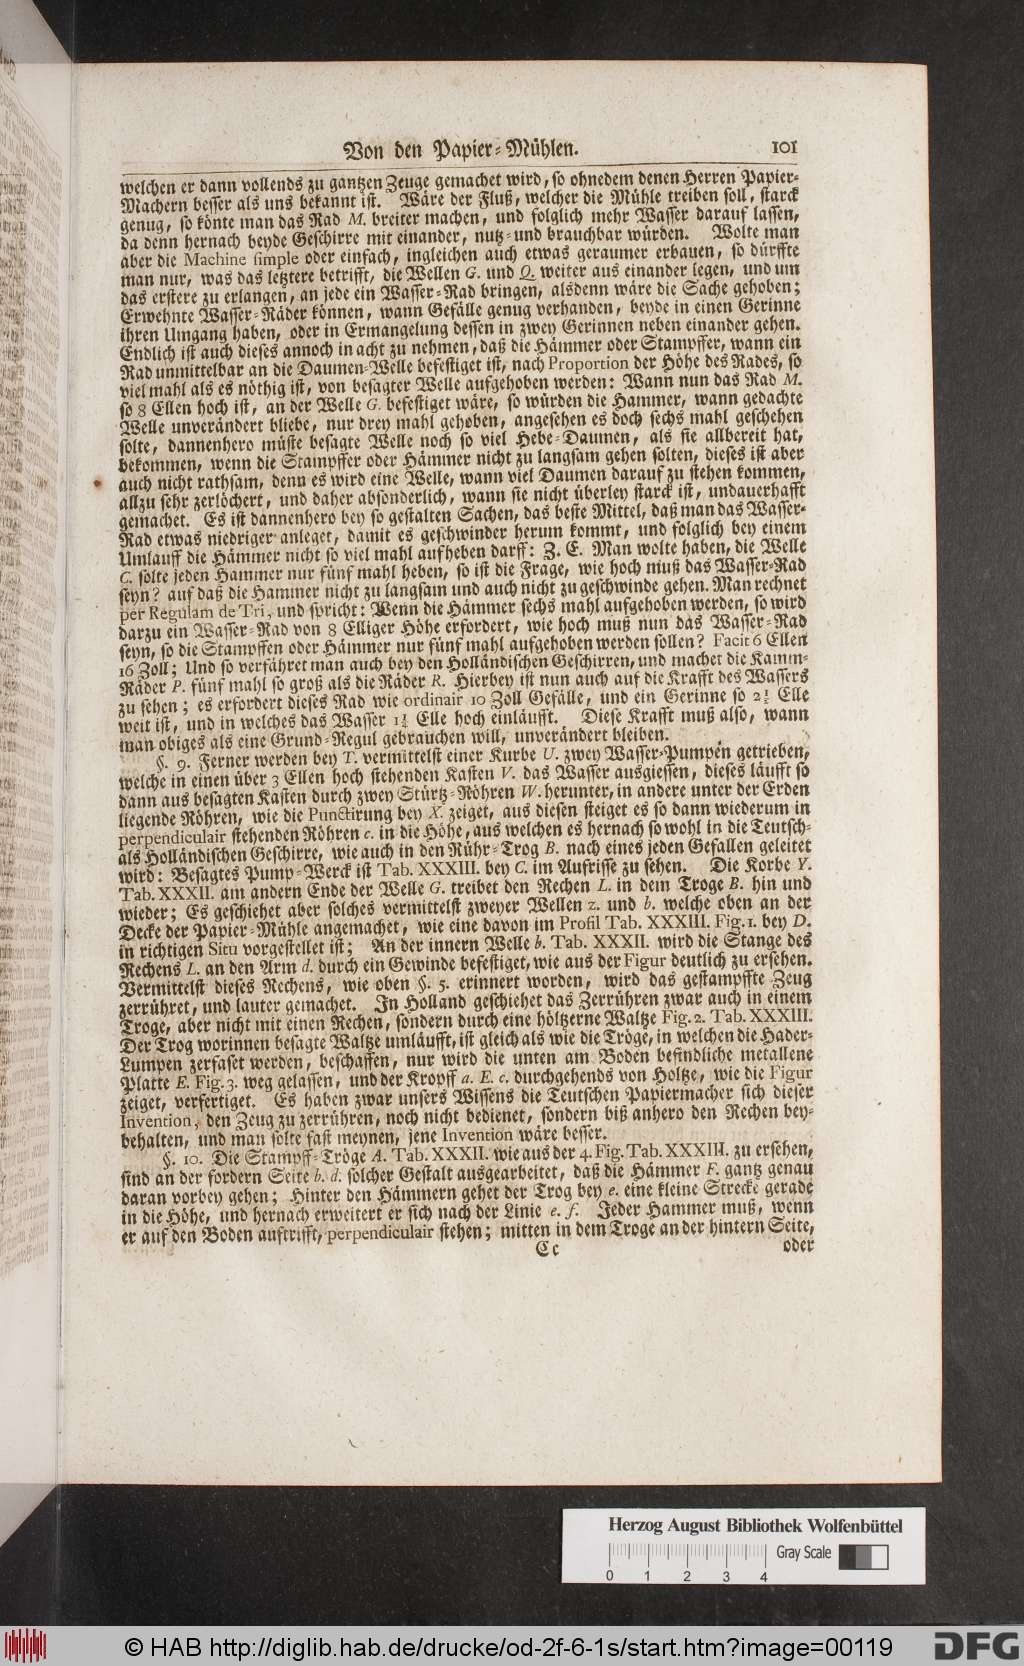 Von den Papier-Mühlen. 101
welchen er dann vollends zu gantzen Zeuge gemachet wird, so ohnedem denen Herren Papier-
Machern besser als uns bekannt ist. Wäre der Fluß, welcher die Mühle treiben soll, starck
genug, so könte man das Rad M. breiter machen, und folglich mehr Wasser darauf lassen,
da denn hernach beyde Geschirre mit einander, nutz- und brauchbar würden. Wolte man
aber die Machine simple oder einfach, ingleichen auch etwas geraumer erbauen, so dürffte
man nur, was das letztere betrifft, die Wellen G. und Q. weiter aus einander legen, und um
das erstere zu erlangen, an jede ein Wasser-Rad bringen, alsdenn wäre die Sache gehoben;
Erwehnte Wasser-Räder können, wann Gefälle genug verhanden, beyde in einen Gerinne
ihren Umgang haben, oder in Ermangelung dessen in zwey Gerinnen neben einander gehen.
Endlich ist auch dieses annoch in acht zu nehmen, daß die Hämmer oder Stampffer, wann ein
Rad unmittelbar an die Daumen-Welle befestiget ist, nach Proportion der Höhe des Rades, so
viel mahl als es nöthig ist, von besagter Welle aufgehoben werden: Wann nun das Rad M.
so 8 Ellen hoch ist, an der Welle G. befestiget wäre, so würden die Hammer, wann gedachte
Welle unverändert bliebe, nur drey mahl gehoben, angesehen es doch sechs mahl geschehen
solte, dannenhero müste besagte Welle noch so viel Hebe-Daumen, als sie allbereit hat,
bekommen, wenn die Stampffer oder Hämmer nicht zu langsam gehen solten, dieses ist aber
auch nicht rathsam, denn es wird eine Welle, wann viel Daumen darauf zu stehen kommen,
allzu sehr zerlöchert, und daher absonderlich, wann sie nicht überley starck ist, undauerhafft
gemachet. Es ist dannenhero bey so gestalten Sachen, das beste Mittel, daß man das Wasser-
Rad etwas niedriger anleget, damit es geschwinder herum kommt, und folglich bey einem
Umlauff die Hämmer nicht so viel mahl aufheben darff: Z. E. Man wolte haben, die Welle
C. solte jeden Hammer nur fünf mahl heben, so ist die Frage, wie hoch muß das Wasser-Rad
seyn? auf daß die Hammer nicht zu langsam und auch nicht zu geschwinde gehen. Man rechnet
per Regulam de Tri, und spricht: Wenn die Hämmer sechs mahl aufgehoben werden, so wird
darzu ein Wasser-Rad von 8 Elliger Höhe erfordert, wie hoch muß nun das Wasser-Rad
seyn, so die Stampffen oder Hämmer nur fünf mahl aufgehoben werden sollen? Facit 6 Ellen
16 Zoll; Und so verfähret man auch bey den Holländischen Geschirren, und machet die Kamm-
Räder P. fünf mahl so groß als die Räder R. Hierbey ist nun auch auf die Krafft des Wassers
zu sehen; es erfordert dieses Rad wie ordinair 10 Zoll Gefälle, und ein Gerinne so 2½ Elle
weit ist, und in welches das Wasser 1¼ Elle hoch einläufft. Diese Krafft muß also, wann
man obiges als eine Grund-Regul gebrauchen will, unverändert bleiben.
§. 9. Ferner werden bey T. vermittelst einer Kurbe U. zwey Wasser-Pumpen getrieben,
welche in einen über 3 Ellen hoch stehenden Kasten V. das Wasser ausgiessen, dieses läufft so
dann aus besagten Kasten durch zwey Stürtz-Röhren W. herunter, in andere unter der Erden
liegende Röhren, wie die Punctirung bey X. zeiget, aus diesen steiget es so dann wiederum in
perpendiculair stehenden Röhren c. in die Höhe, aus welchen es hernach so wohl in die Teutsch-
als Holländischen Geschirre, wie auch in den Rühr-Trog B. nach eines jeden Gefallen geleitet
wird: Besagtes Pump-Werck ist Tab. XXXIII. bey C. im Aufrisse zu sehen. Die Korbe Y.
Tab. XXXII. am andern Ende der Welle G. treibet den Rechen L. in dem Troge B. hin und
wieder; Es geschiehet aber solches vermittelst zweyer Wellen z. und b. welche oben an der
Decke der Papier-Mühle angemachet, wie eine davon im Profil Tab. XXXIII. Fig. 1. bey D.
in richtigen Situ vorgestellet ist; An der innern Welle b. Tab. XXXII. wird die Stange des
Rechens L. an den Arm d. durch ein Gewinde befestiget, wie aus der Figur deutlich zu ersehen.
Vermittelst dieses Rechens, wie oben §. 5. erinnert worden, wird das gestampffte Zeug
zerrühret, und lauter gemachet. In Holland geschiehet das Zerrühren zwar auch in einem
Troge, aber nicht mit einen Rechen, sondern durch eine höltzerne Waltze Fig. 2. Tab. XXXIII.
Der Trog worinnen besagte Waltze umläufft, ist gleich als wie die Tröge, in welchen die Hader-
Lumpen zerfaset werden, beschaffen, nur wird die unten am Boden befindliche metallene
Platte E. Fig. 3. weg gelassen, und der Kropff a. E. c. durchgehends von Holtze, wie die Figur
zeiget, verfertiget. Es haben zwar unsers Wissens die Teutschen Papiermacher sich dieser
Invention, den Zeug zu zerrühren, noch nicht bedienet, sondern biß anhero den Rechen bey-
behalten, und man solte fast meynen, jene Invention wäre besser.
§. 10. Die Stampff-Tröge A. Tab. XXXII. wie aus der 4. Fig. Tab. XXXIII. zu ersehen,
sind an der fordern Seite b. d. solcher Gestalt ausgearbeitet, daß die Hämmer F. gantz genau
daran vorbey gehen; Hinter den Hämmern gehet der Trog bey e. eine kleine Strecke gerade
in die Höhe, und hernach erweitert er sich nach der Linie e. f. Jeder Hammer muß, wenn
er auf den Boden auftrifft, perpendiculair stehen; mitten in dem Troge an der hintern Seite,
Cc oder
Herzog August Bibliothek Wolfenbüttel
Gray Scale
0 1 2 3 4
© HAB http://diglib.hab.de/drucke/od-2f-6-1s/start.htm?image=00119
DFG